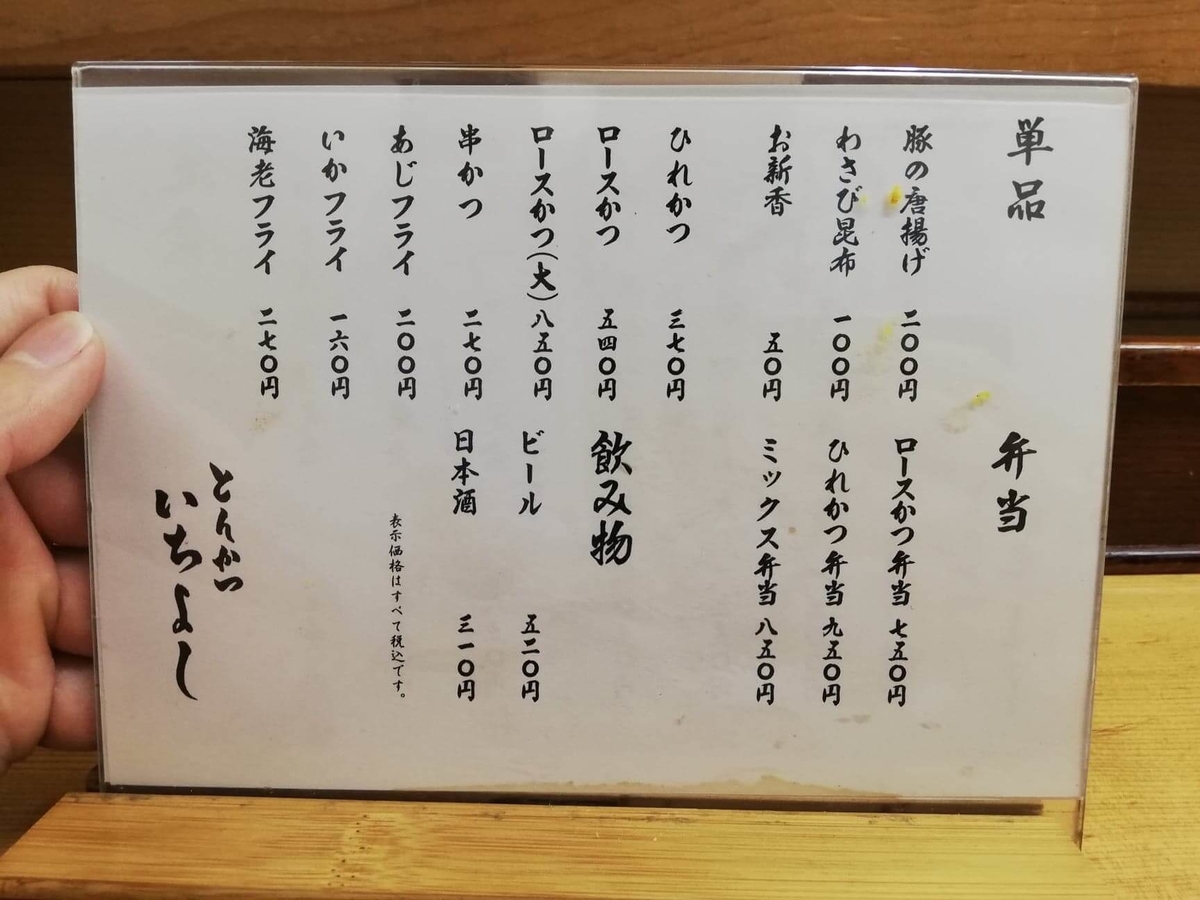 単品
豚の唐揚げ 二〇〇円
わさび昆布 一〇〇円
お新香 五〇円
ひれかつ 三七〇円
ロースかつ 五四〇円
ロースかつ(大) 八五〇円
串かつ 二七〇円
あじフライ 二〇〇円
いかフライ 一六〇円
海老フライ 二七〇円
弁当
ロースかつ弁当 七五〇円
ひれかつ弁当 九五〇円
ミックス弁当 八五〇円
飲み物
ビール 五二〇円
日本酒 三一〇円
表示価格はすべて税込です。
とんかつ
いちよし